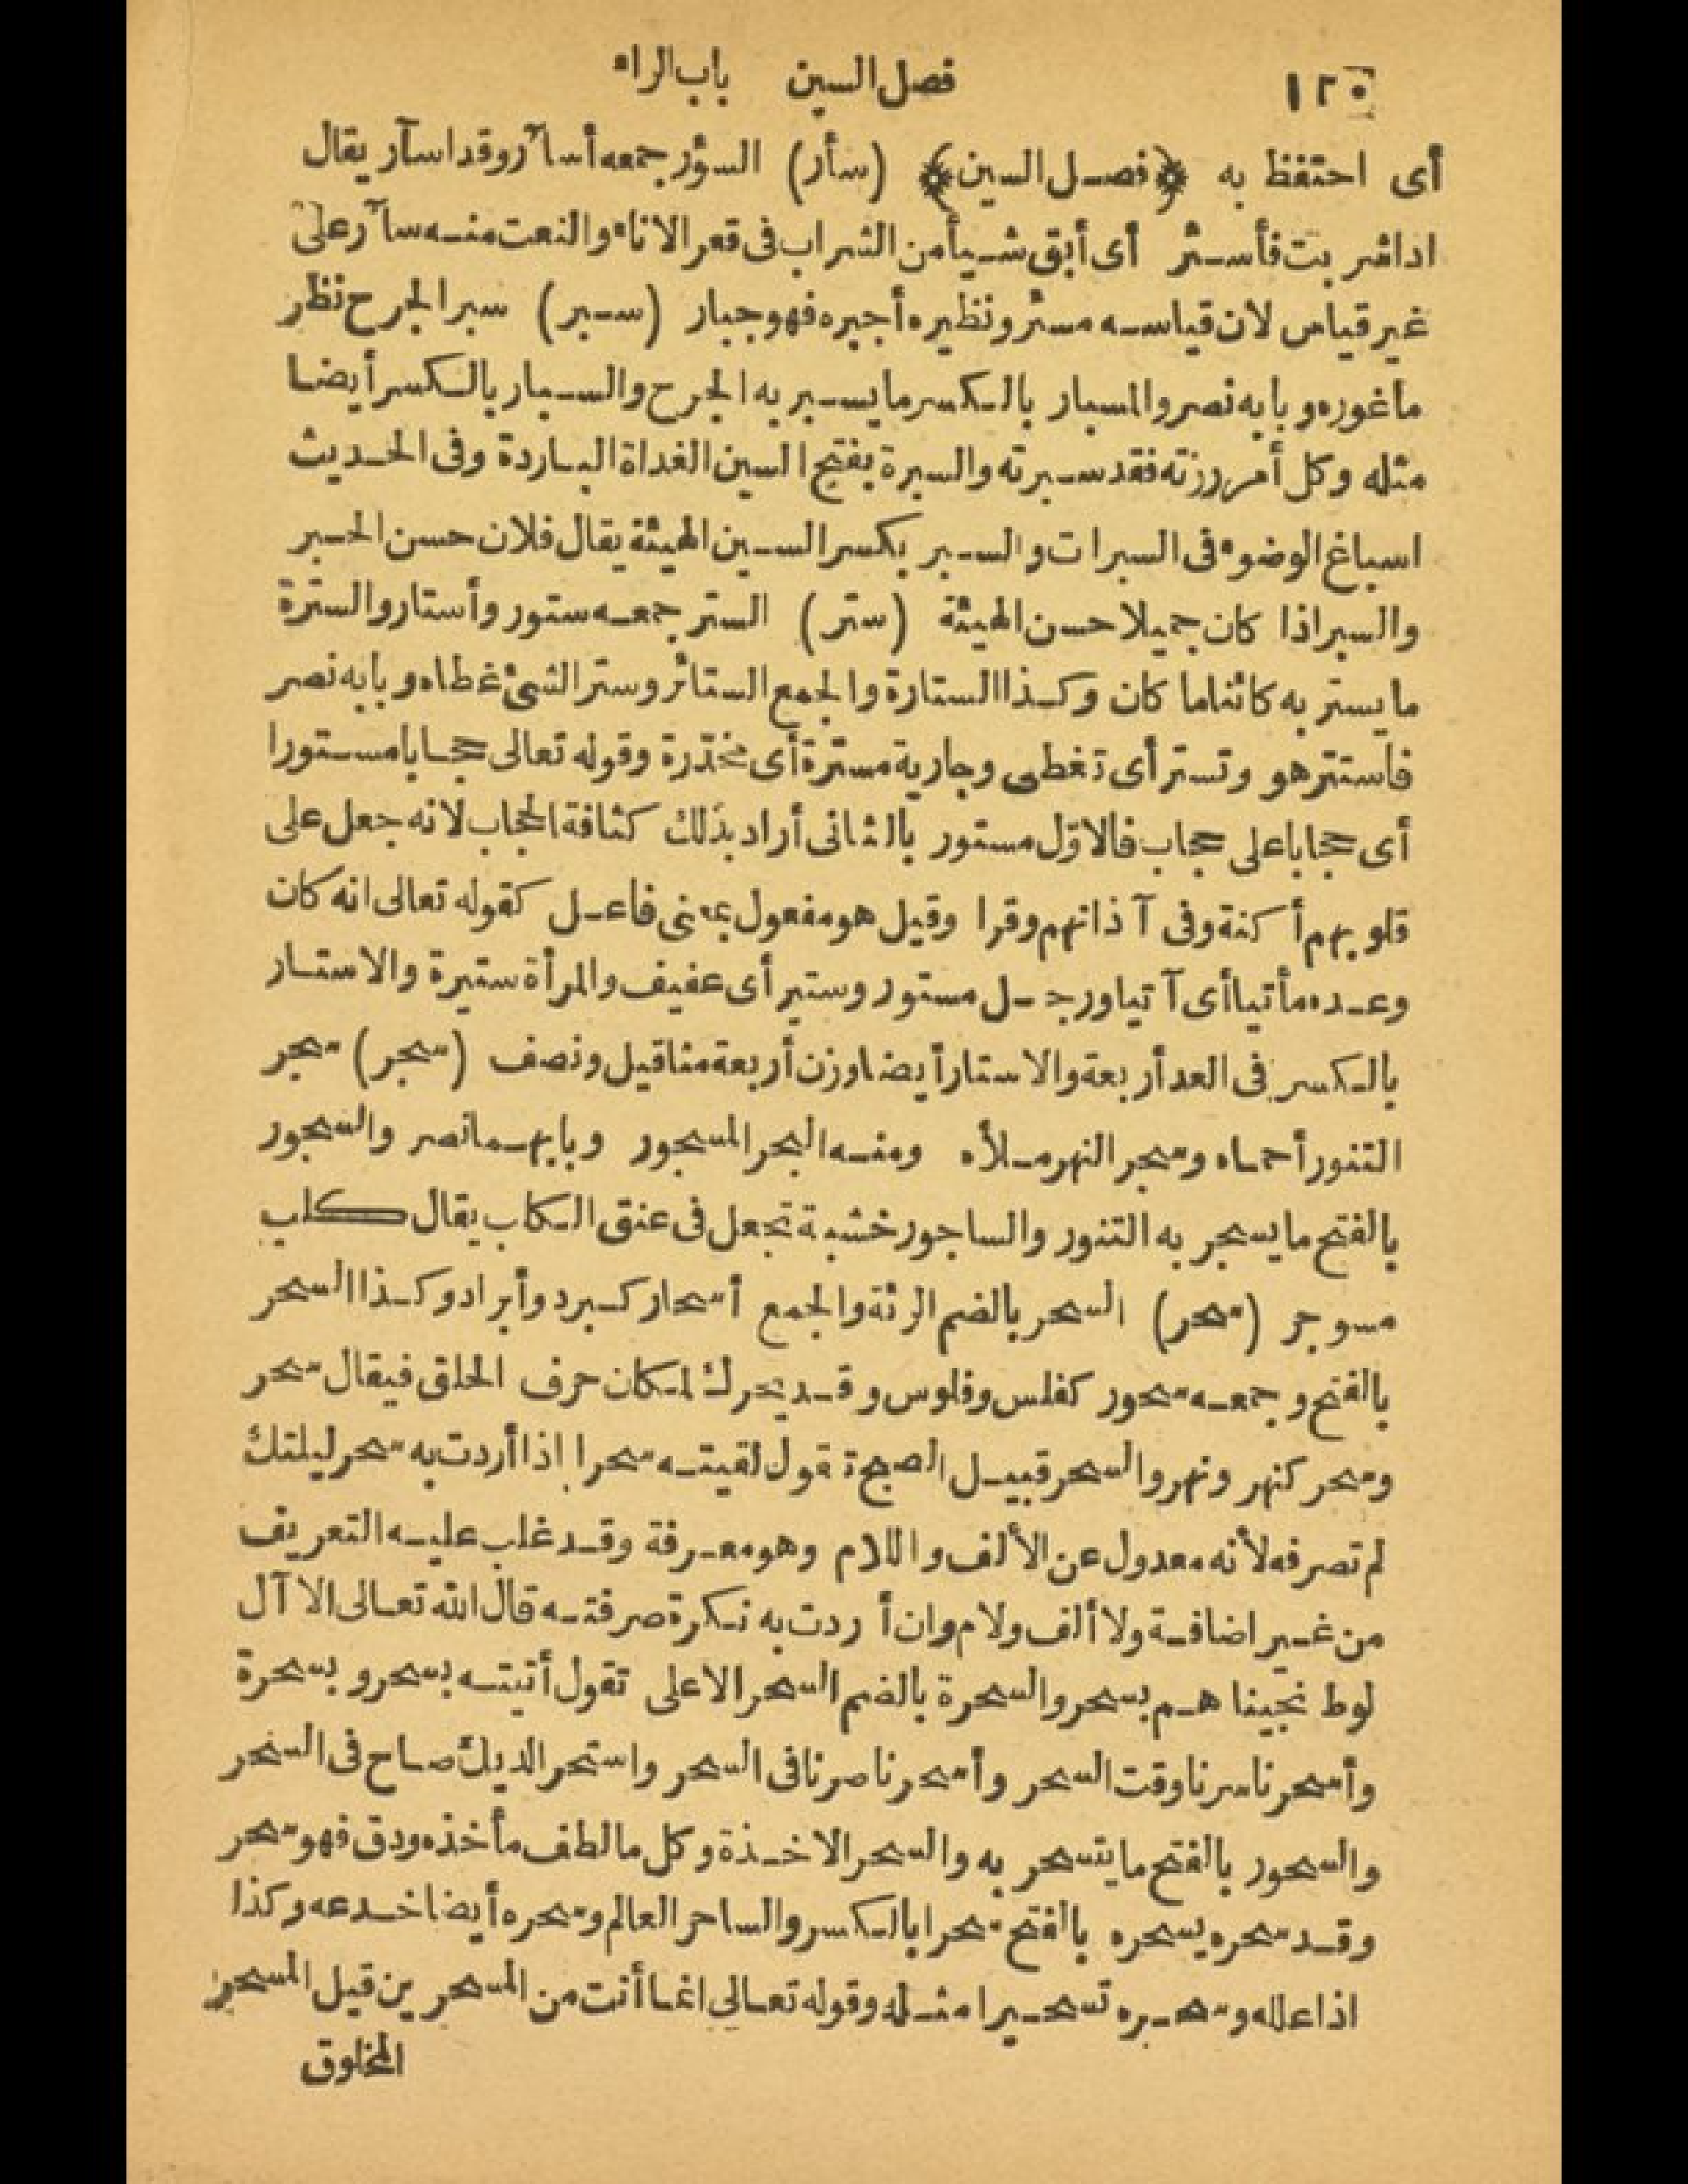 ١٢٠ فصل السين باب الراء
أى احتفظ به ﴿فصل السين﴾ (سأر) السؤر جمعه أسآر وقد اسأر يقال
اذا شربت فأسئر أى أبق شيأ من الشراب فى قعر الاناء والنعت منه سآر على
غير قياس لان قياسه مسئر ونظيره أجبره فهو جبار (سبر) سبر الجرح نظر
ما غوره وبابه نصر والمسبار بالكسر ما يسبر به الجرح والسبار بالكسر أيضا
مثله وكل أمر رزته فقد سبرته والسبرة بفتح السين الغداة الباردة وفى الحديث
اسباغ الوضوء فى السبرات والسبر بكسر السين الهيئة يقال فلان حسن الحبر
والسبر اذا كان جميلا حسن الهيئة (ستر) الستر جمعه ستور وأستار والسترة
ما يستر به كائنا ما كان وكذا الستارة والجمع الستائر وستر الشئ غطاه وبابه نصر
فاستتر هو وتستر أى تغطى وجارية مسترة أى مخدّرة وقوله تعالى حجابا مستورا
أى حجابا على حجاب فالاوّل مستور بالثانى أراد بذلك كثافة الحجاب لانه جعل على
قلوبهم أكنة وفى آذانهم وقرا وقيل هو مفعول بمعنى فاعل كقوله تعالى انه كان
وعده مأتيا أى آتيا ورجل مستور وستير أى عفيف والمرأة ستيرة والاستار
بالكسر فى العد أربعة والاستار أيضا وزن أربعة مثاقيل ونصف (سجر) سجر
التنور أحماه وسجر النهر ملأه ومنه البحر المسجور وبابهما نصر والسجور
بالفتح ما يسجر به التنور والساجور خشبة تجعل فى عنق الكلب يقال كلب
مسوجر (سحر) السحر بالضم الرئة والجمع أسحار كبرد وأبراد وكذا السحر
بالفتح وجمعه سحور كفلس وفلوس وقد يحرك لمكان حرف الحلق فيقال سحر
وسحر كنهر ونهر والسحر قبيل الصبح تقول لقيته سحرا اذا أردت به سحر ليلتك
لم تصرفه لأنه معدول عن الألف واللام وهو معرفة وقد غلب عليه التعريف
من غير اضافة ولا ألف ولام وان أردت به نكرة صرفته قال الله تعالى الا آل
لوط نجيناهم بسحر والسحرة بالضم السحر الاعلى تقول أتيته بسحر وبسحرة
وأسحرنا سرنا وقت السحر وأسحرنا صرنا فى السحر واستحر الديك صاح فى السحر
والسحور بالفتح ما يتسحر به والسحر الاخذة وكل ما لطف مأخذه ودق فهو سحر
وقد سحره يسحره بالفتح سحرا بالكسر والساحر العالم وسحره أيضا خدعه وكذا
اذا علله وسحره تسحيرا مثله وقوله تعالى انما أنت من المسحرين قيل المسحر
المخلوق